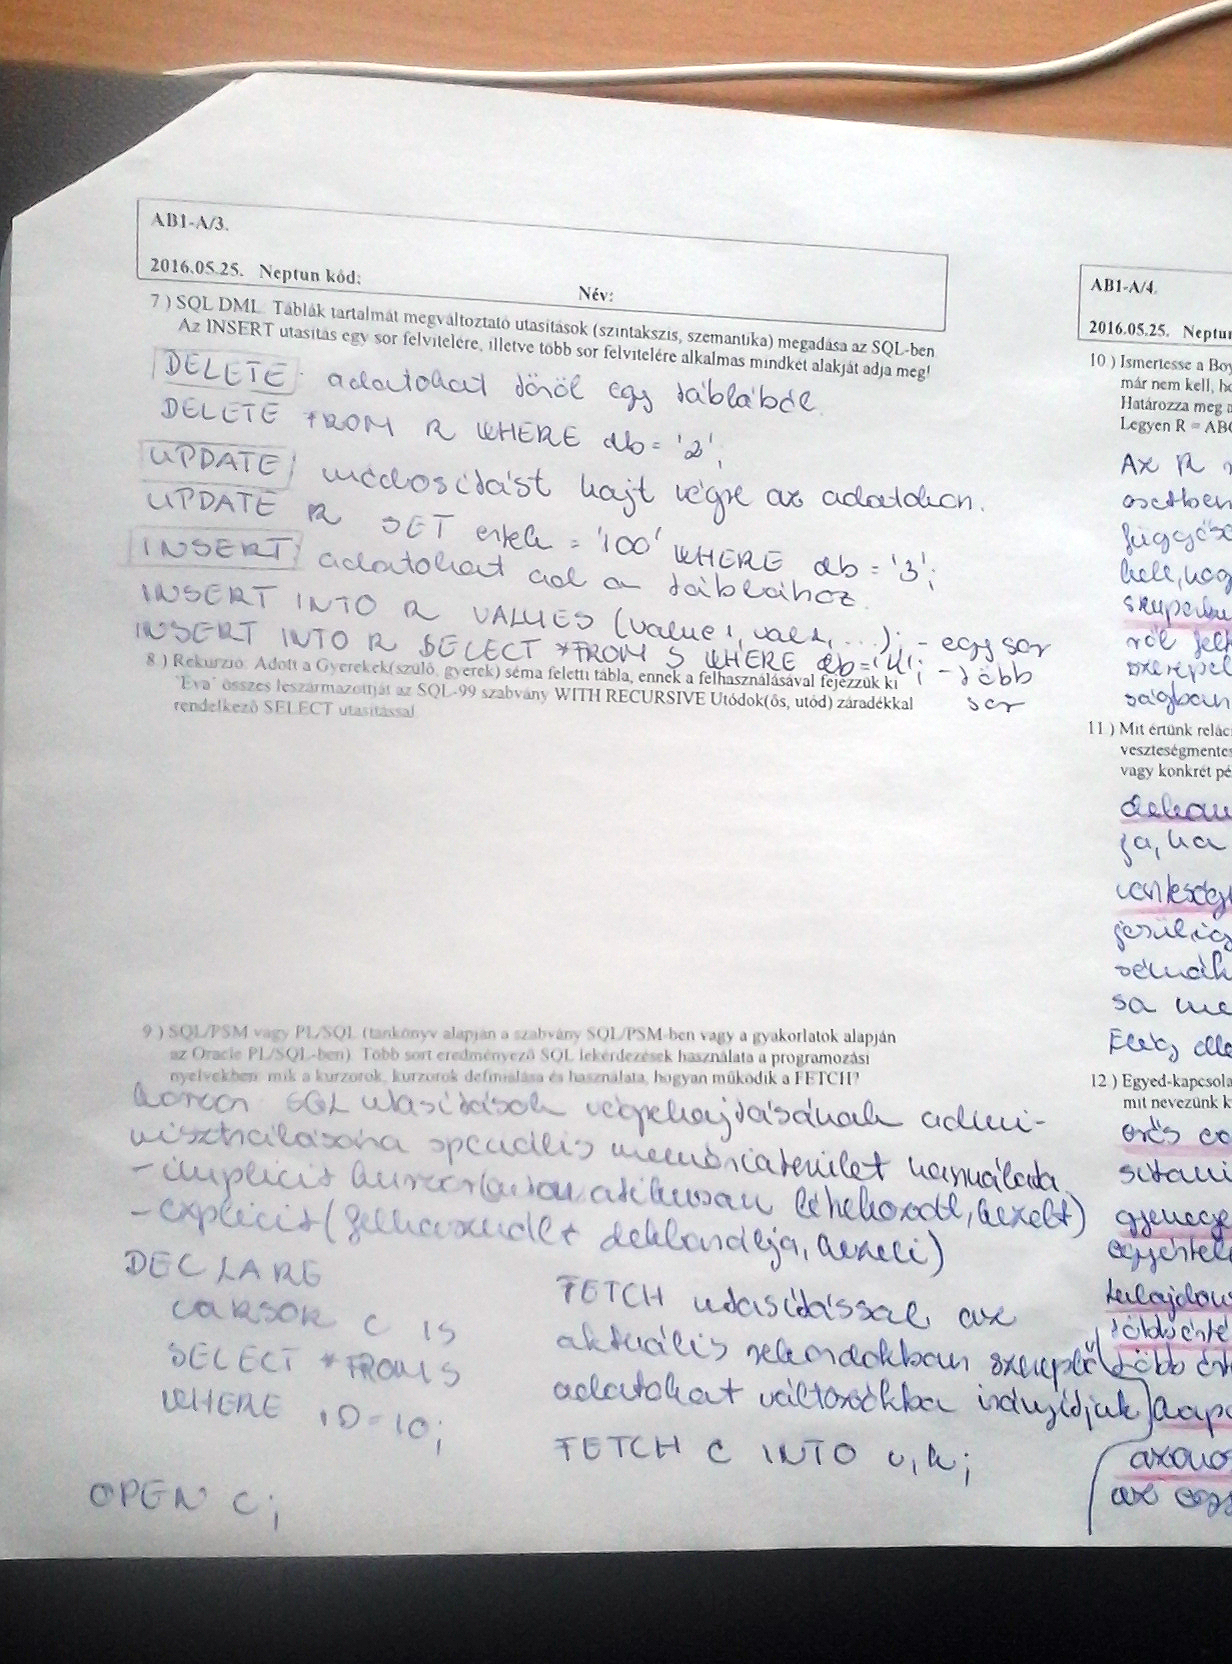 AB1-A/3.
2016.05.25. Neptun kód:
Név:
7.) SQL DML. Táblák tartalmát megváltoztató utasítások (szintakszis, szemantika) megadása az SQL-ben.
Az INSERT utasítás egy sor felvitelére, illetve több sor felvitelére alkalmas mindkét alakját adja meg!
DELETE adatokat töröl egy táblából.
DELETE FROM R WHERE db = '2';
UPDATE módosítást hajt végre az adatokon.
UPDATE R SET ertek = '100' WHERE db = '3';
INSERT adatokat ad a táblához.
INSERT INTO R VALUES (value1, val2, ...); - egy sor
INSERT INTO R SELECT * FROM S WHERE db='4'; - több
sor
8.) Rekurzió. Adott a Gyerekek(szülő, gyerek) séma feletti tábla, ennek a felhasználásával fejezzük ki
'Éva' összes leszármazottját az SQL-99 szabvány WITH RECURSIVE Utódok(ős, utód) záradékkal
rendelkező SELECT utasítással.
9.) SQL/PSM vagy PL/SQL (tankönyv alapján a szabvány SQL/PSM-ben vagy a gyakorlatok alapján
az Oracle PL/SQL-ben). Több sort eredményező SQL lekérdezések használata a programozási
nyelvekben: mik a kurzorok, kurzorok definiálása és használata, hogyan működik a FETCH?
kurzor SQL utasítások végrehajtásának admi-
nisztrálására speciális memóriaterület használata.
- implicit kurzor (automatikusan létrehozott, kezelt)
- explicit (felhasználó deklarálja, kezeli)
DECLARE
CURSOR C IS
SELECT * FROM S
WHERE ID=10;
OPEN C;
FETCH utasítással az
aktuális rekordokban szereplő
adatokat változókba irányítjuk
FETCH C INTO v, k;
AB1-A/4.
2016.05.25. Neptu
10.) Ismertesse a Boy
már nem kell, ho
Határozza meg a
Legyen R = ABC
Az R
esetben
függősé
kell, hog
szuperku
ról fel
szerepel
ságban
11.) Mit értünk relác
veszteségmentes
vagy konkrét pé
dekom
ja, ha
veszteség
sémák
sa me
12.) Egyed-kapcsola
mit nevezünk k
erős
gyenge
egyérte
tulajdon
többérté
több ért
kapc
azono
az egy